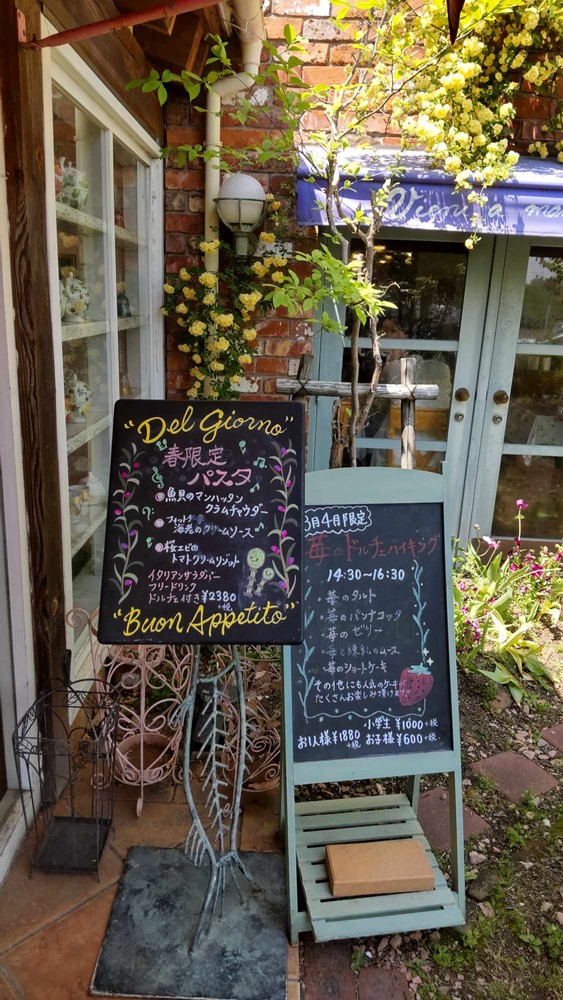 "Del Giorno"
春限定
パスタ
魚貝のマンハッタン
クラムチャウダー
海老のクリームソース
桜エビの
トマトクリームリゾット
イタリアンサラダバー
フリードリンク
ドルチェ付き ¥2380
+税
"Buon Appetito"
3月4月限定
苺のドルチェバイキング
14:30~16:30
・苺のタルト
・苺のパンナコッタ
・苺のゼリー
・苺と練乳のムース
・苺のショートケーキ
その他にも人気のケーキが
たくさんお楽しみ頂けます
小学生 ¥1000+税
お1人様 ¥1880+税 お子様 ¥600+税